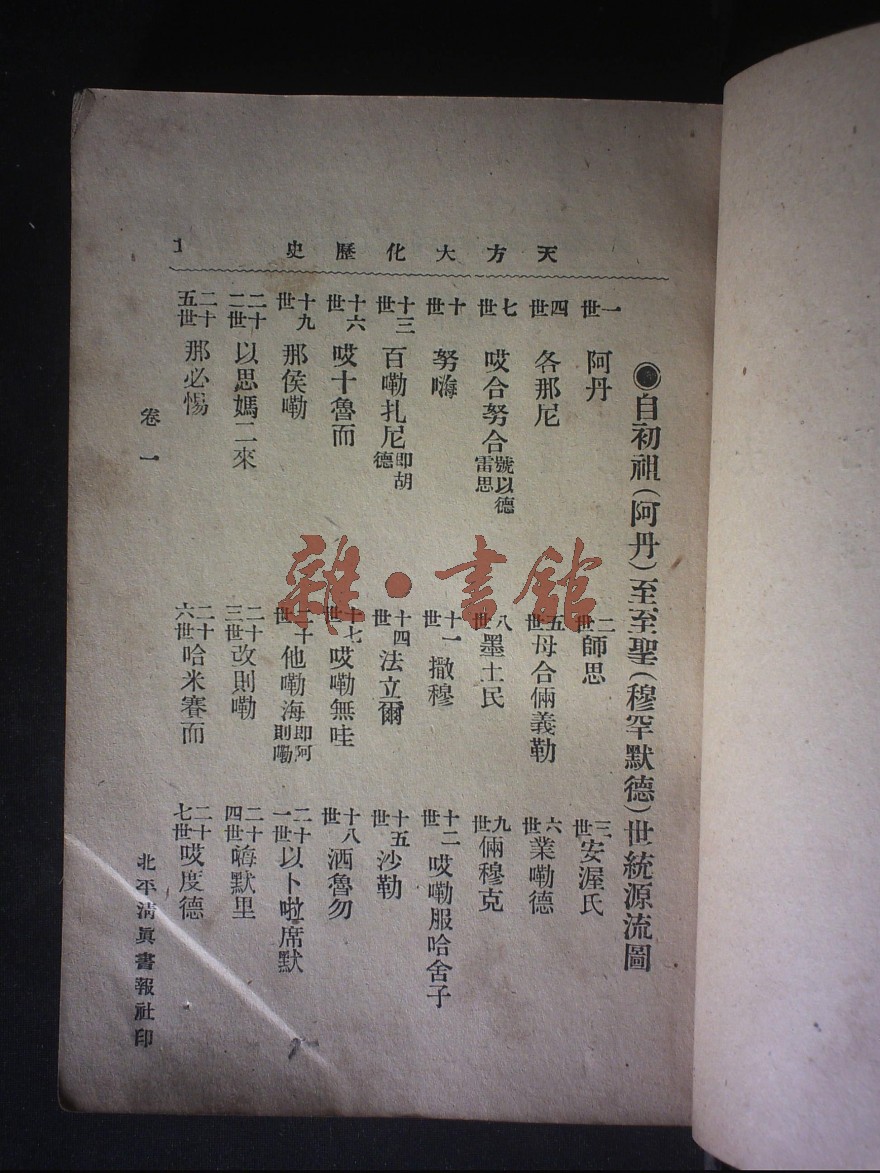 天方大化歷史
1
◉自初祖(阿丹)至至聖(穆罕默德)世統源流圖
一世 阿丹
二世 師思
三世 安渥氏
四世 各那尼
五世 母合倆義勒
六世 業嘞德
七世 哎合努合 號以德雷思
八世 墨土民
九世 倆穆克
十世 努嗨
十一世 撒穆
十二世 哎嘞服哈舍子
十三世 百嘞扎尼 即胡德
十四世 法立爾
十五世 沙勒
十六世 哎十魯而
十七世 哎嘞無哇
十八世 洒魯勿
十九世 那侯嘞
二十世 他嘞海 即阿則嘞
二十一世 以卜啦席默
二十二世 以思媽二來
二十三世 改則嘞
二十四世 嗨默里
二十五世 那必惕
二十六世 哈米賽而
二十七世 哎度德
卷一
北平清眞書報社印
雜·書館